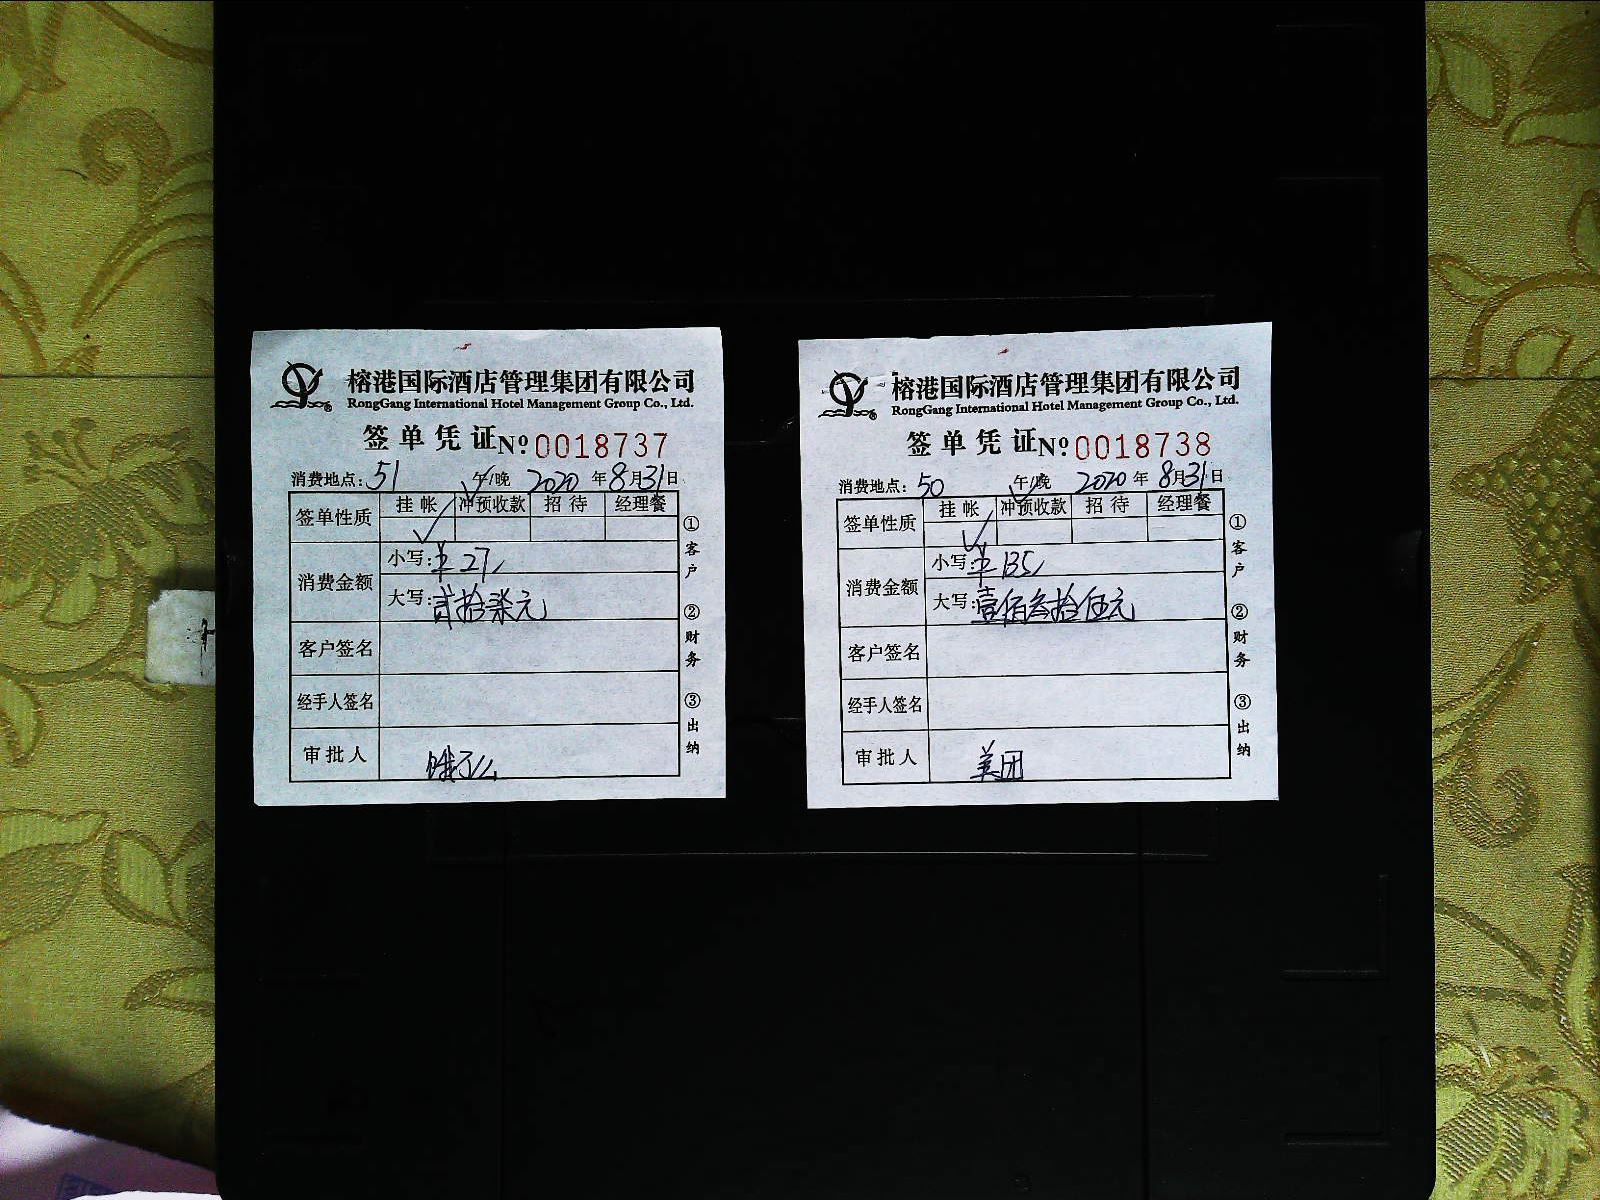 榕港国际酒店管理集团有限公司
RongGang International Hotel Management Group Co., Ltd.
签单凭证 Nº:0018737
消费地点:51 午/晚 2020年8月31日
签单性质 挂帐 冲预收款 招待 经理餐
消费金额
小写:¥27
大写:贰拾柒元
客户签名
经手人签名
审批人 饿了么
①客户 ②财务 ③出纳
榕港国际酒店管理集团有限公司
RongGang International Hotel Management Group Co., Ltd.
签单凭证 Nº:0018738
消费地点:50 午/晚 2020年8月31日
签单性质 挂帐 冲预收款 招待 经理餐
消费金额
小写:¥135
大写:壹佰叁拾伍元
客户签名
经手人签名
审批人 美团
①客户 ②财务 ③出纳